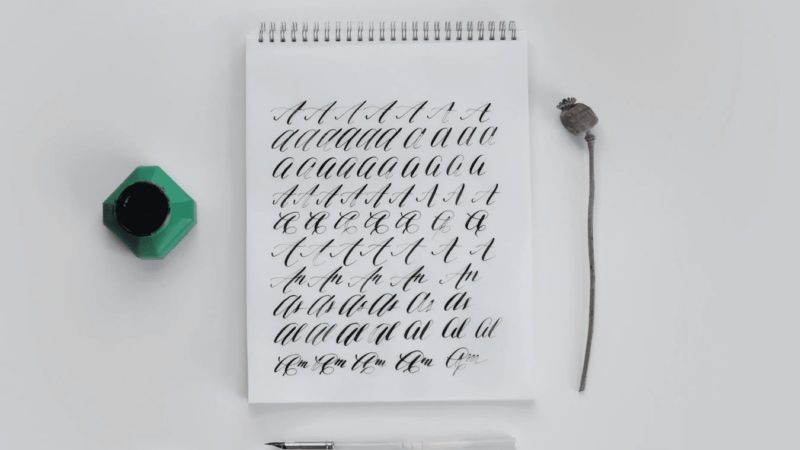 A A A A A A A
A A A A A A A A A A
A A A A A A A A A
A A A A A A A A A
A A A A A A A
A A A A A A A
An An An An An
As As As As As As
Al Al Al Al Al Al Al
Am Am Am Am Am